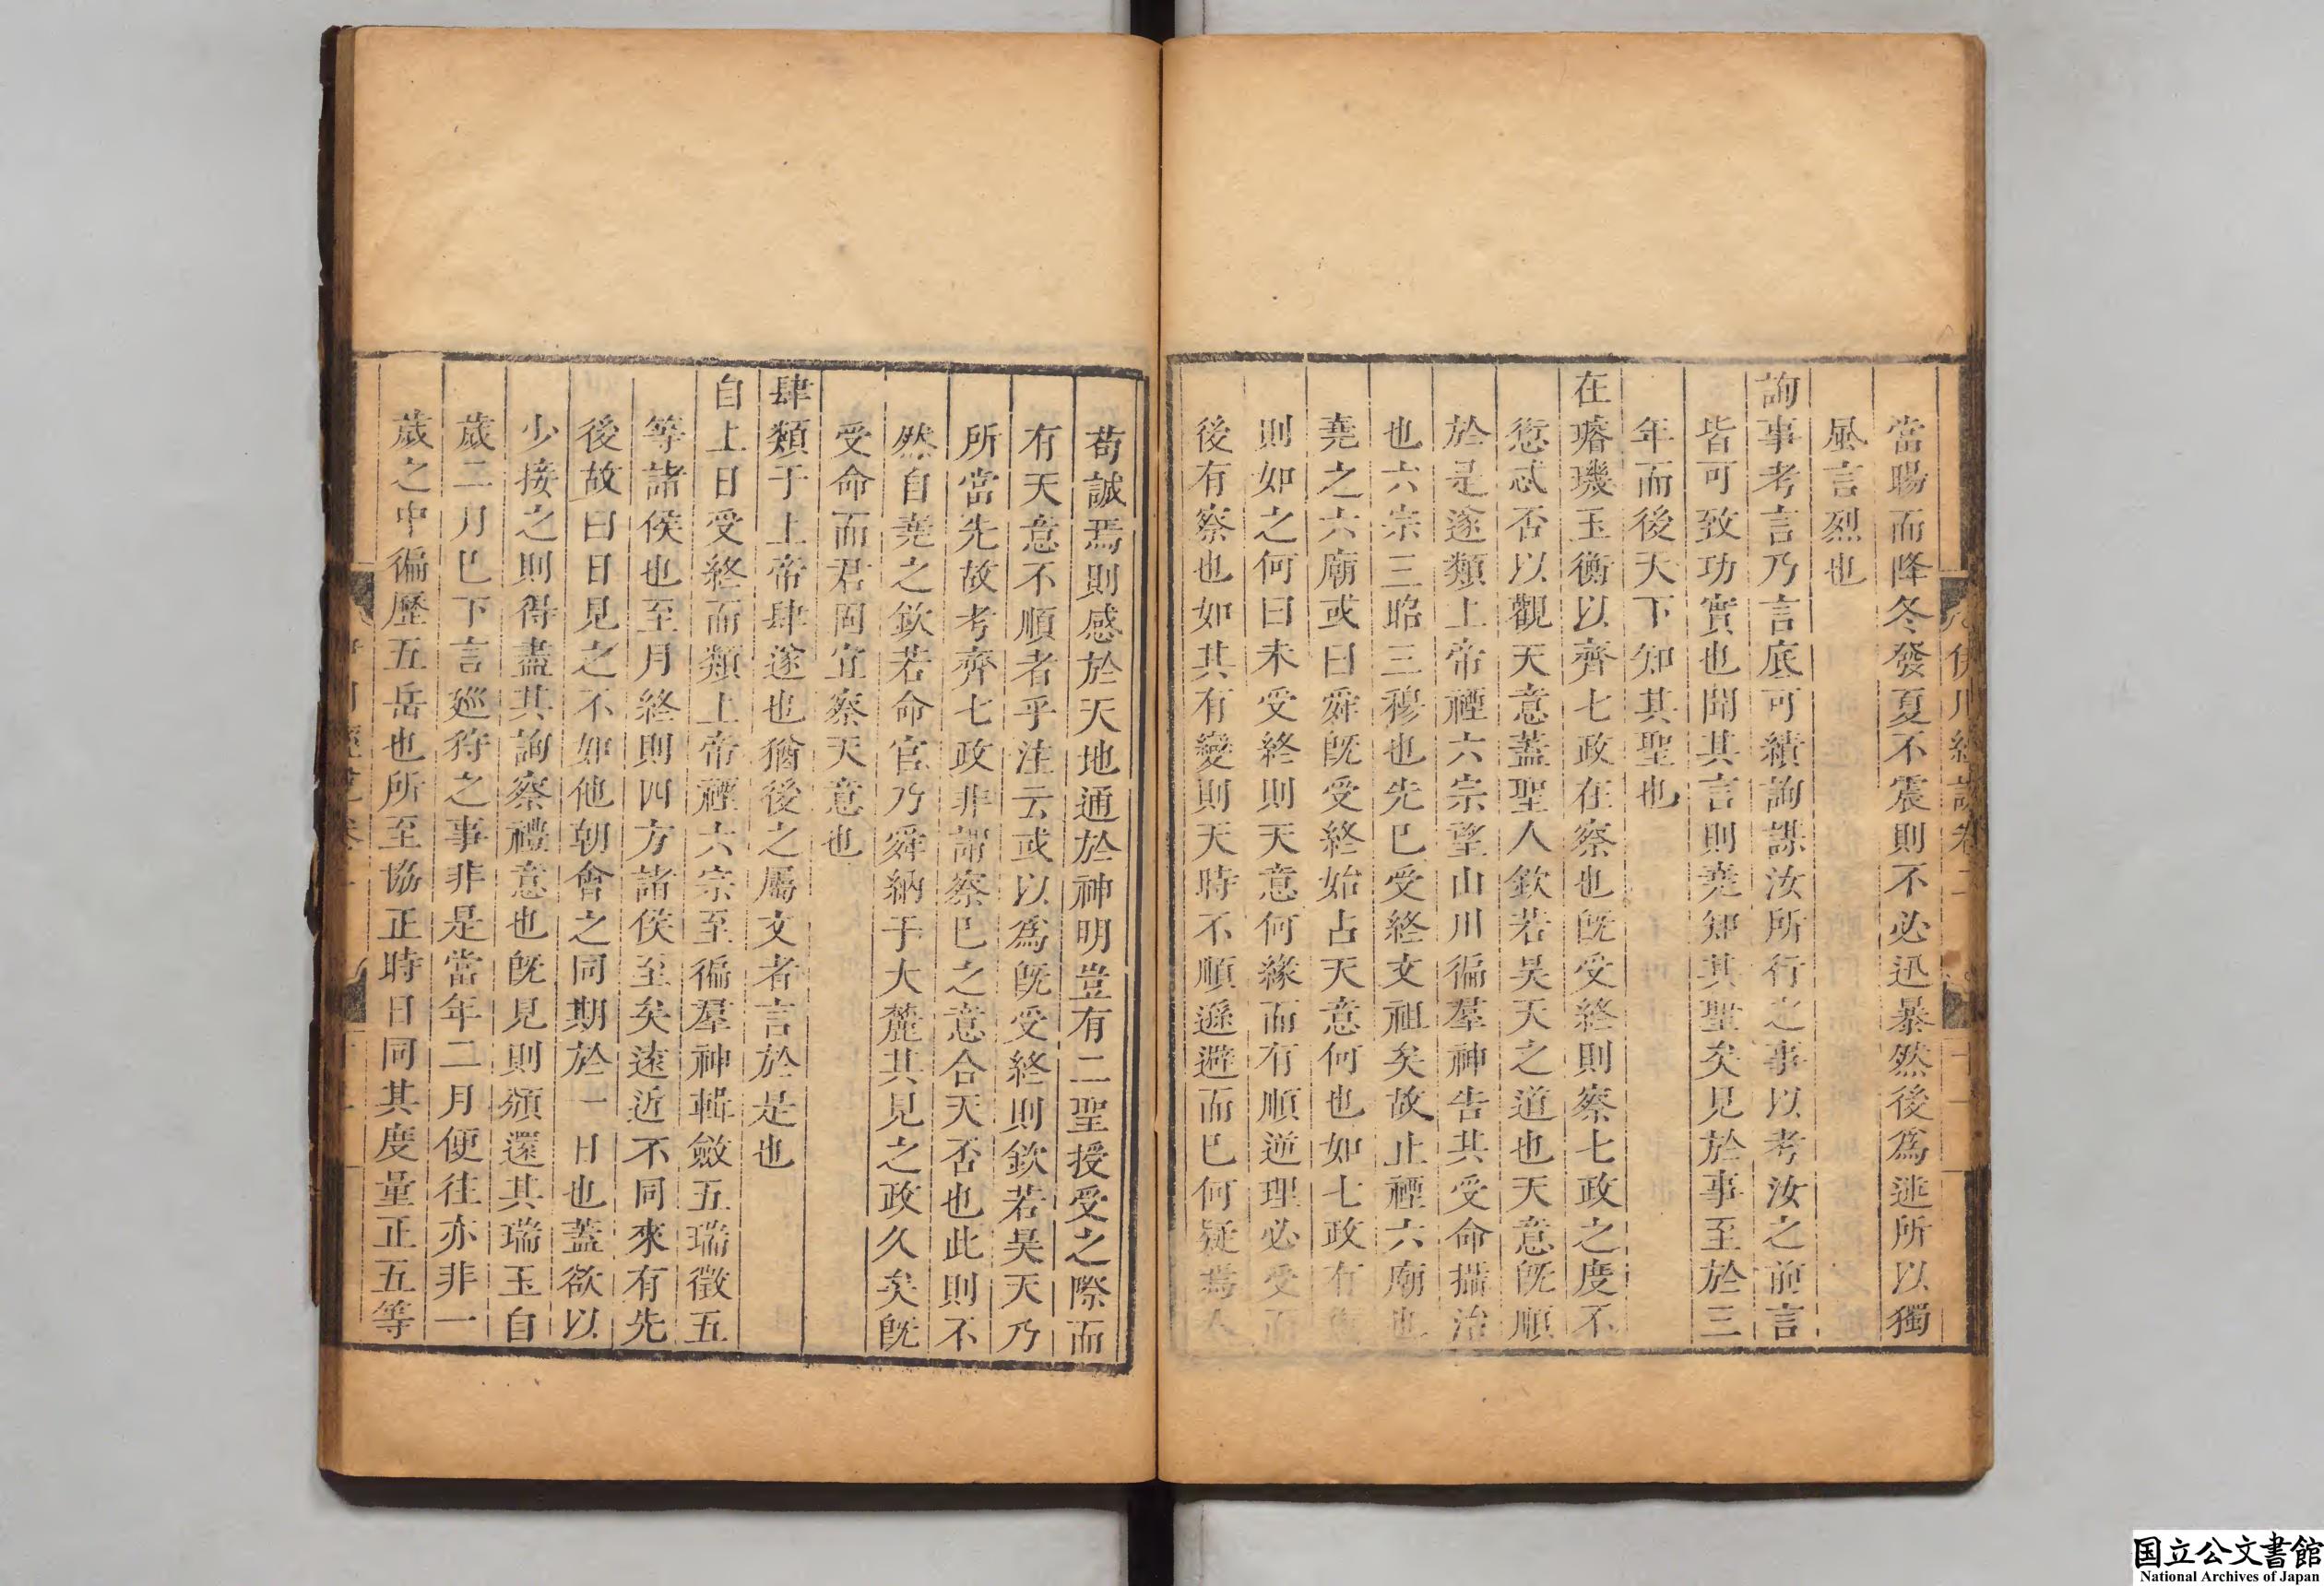 當暘而降冬發夏不震則不必迅暴然後爲逆所以獨
風言烈也
詢事考言乃言底可績詢謀汝所行之事以考汝之前言
皆可致功實也聞其言則堯知其聖矣見於事至於三
年而後天下知其聖也
在璿璣玉衡以齊七政在察也旣受終則察七政之度不
愆忒否以觀天意蓋聖人欽若昊天之道也天意旣順
於是遂類上帝禋六宗望山川徧羣神告其受命攝治
也六宗三昭三穆也先已受終文祖矣故止禋六廟也
堯之六廟或曰舜旣受終始占天意何也如七政有
則如之何曰未受終則天意何緣而有順逆理必受而
後有察也如其有變則天時不順遜避而已何疑焉人
苟誠焉則感於天地通於神明豈有二聖授受之際而
有天意不順者乎注云或以爲旣受終則欽若昊天乃
所當先故考齊七政非謂察已之意合天否也此則不
然自堯之欽若命官乃舜納于大麓其見之政久矣旣
受命而君固宜察天意也
肆類于上帝肆遂也猶後之屬文者言於是也
自上日受終而類上帝禋六宗至徧羣神輯斂五瑞徵五
等諸侯也至月終則四方諸侯至矣遠近不同來有先
後故曰日見之不如他朝會之同期於一日也蓋欲以
少接之則得盡其詢察禮意也旣見則頒還其瑞玉自
歲二月已下言廵狩之事非是當年二月便往亦非一
歲之中徧歷五岳也所至協正時日同其度量正五等
国立公文書館
National Archives of Japan